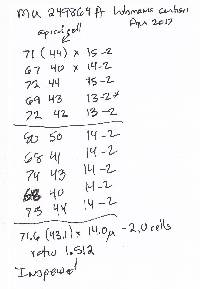 MU 249864A
Apr 2017
apical cell
71 (44) × 15-2
67 40 × 14-2
72 44 15-2
69 43 13-2*
72 42 13-2
50 14-2
68 41 14-2
74 43 14-2
68 40 14-2
75 44 14-2
71.6 (43.1) × 14.0µ - 2.0 cells
ratio 1:5.12